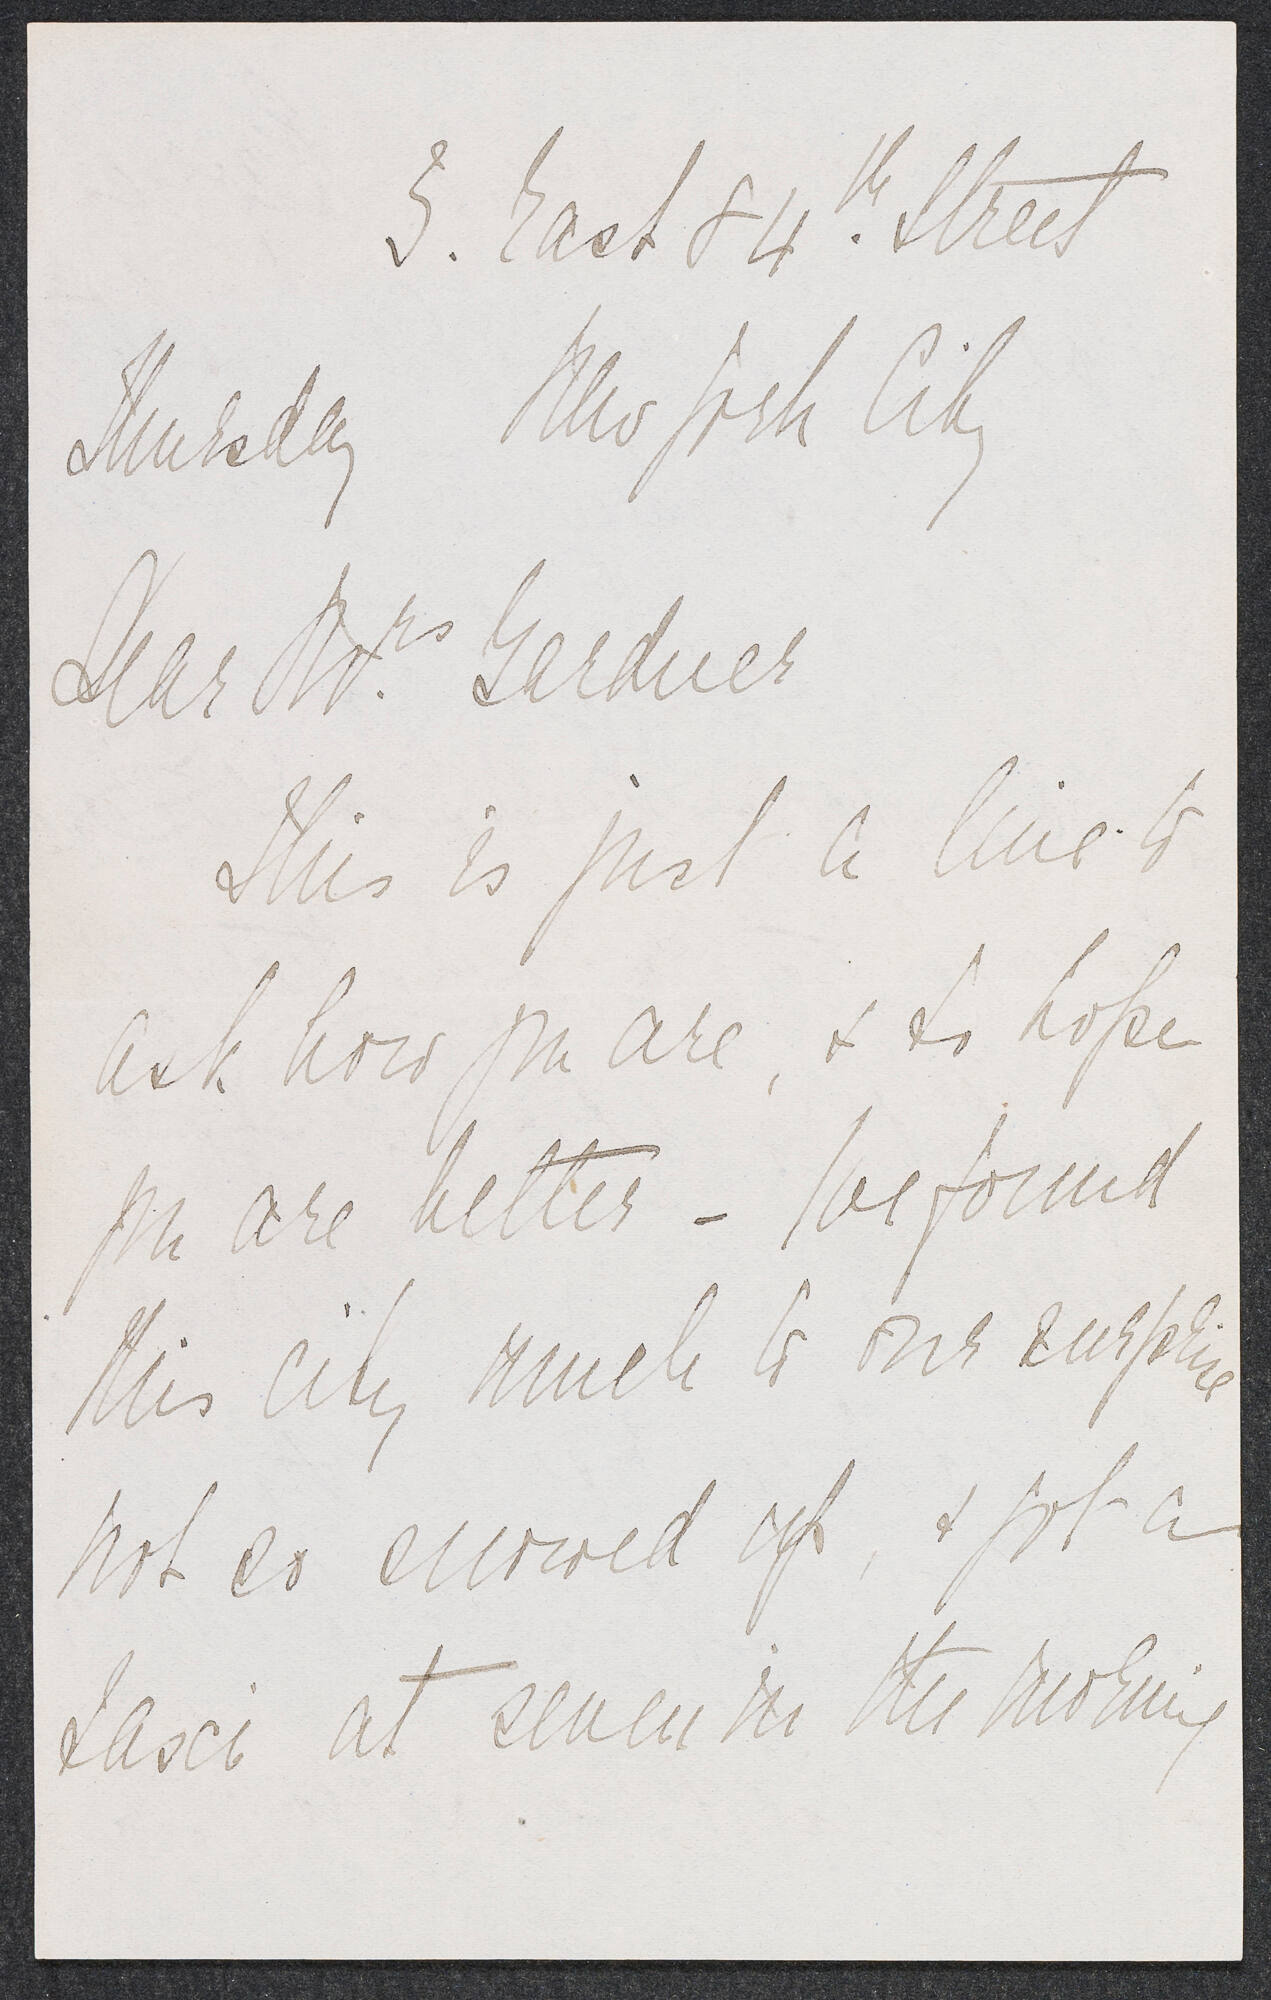 5. East 84th. Street
New York City
Thursday
Dear Mrs. Gardner
This is just a line to
ask how you are, & to hope
you are better - We found
this city much to our surprise
not so snowed up, & got a
taxi at seven in the morning